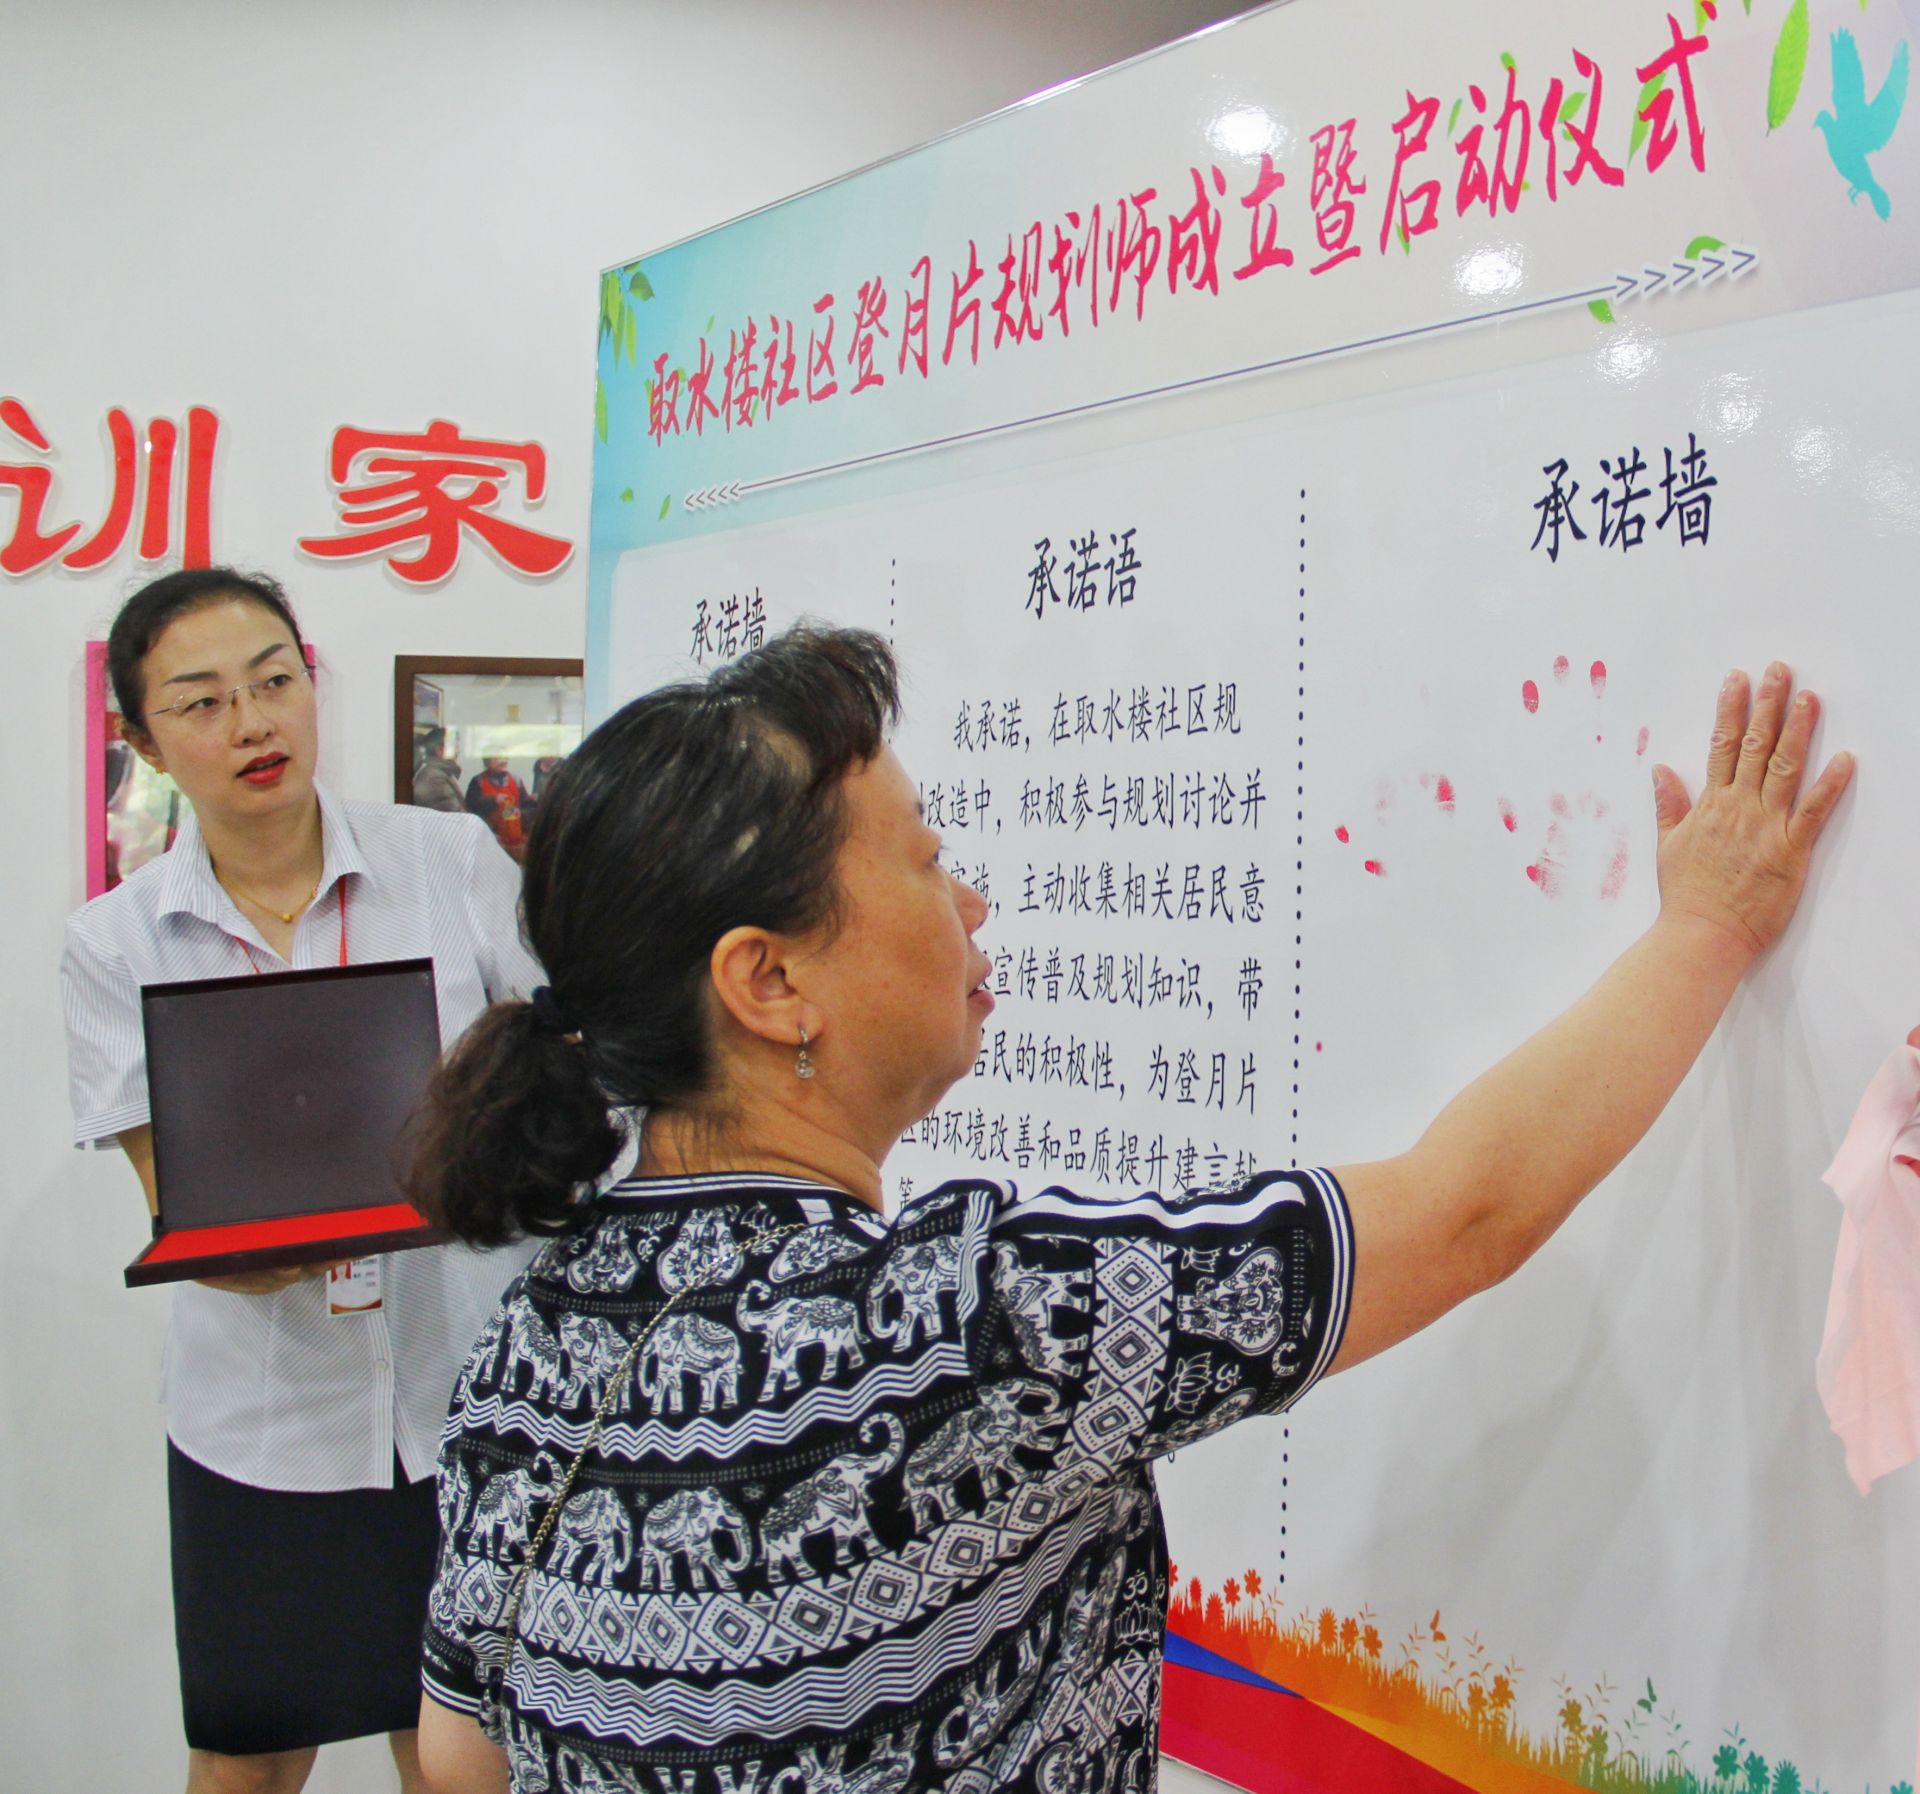 训家
取水楼社区登月片规划师成立暨启动仪式
承诺墙
承诺语
承诺墙
我承诺，在取水楼社区规
改造中，积极参与规划讨论并
施，主动收集相关居民意
宣传普及规划知识，带
居民的积极性，为登月片
区的环境改善和品质提升建言献
策